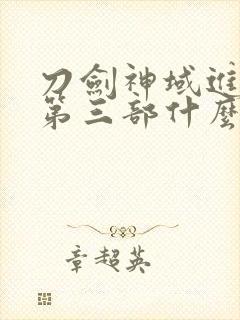 刀劍神域進
第三部什麼
章超英